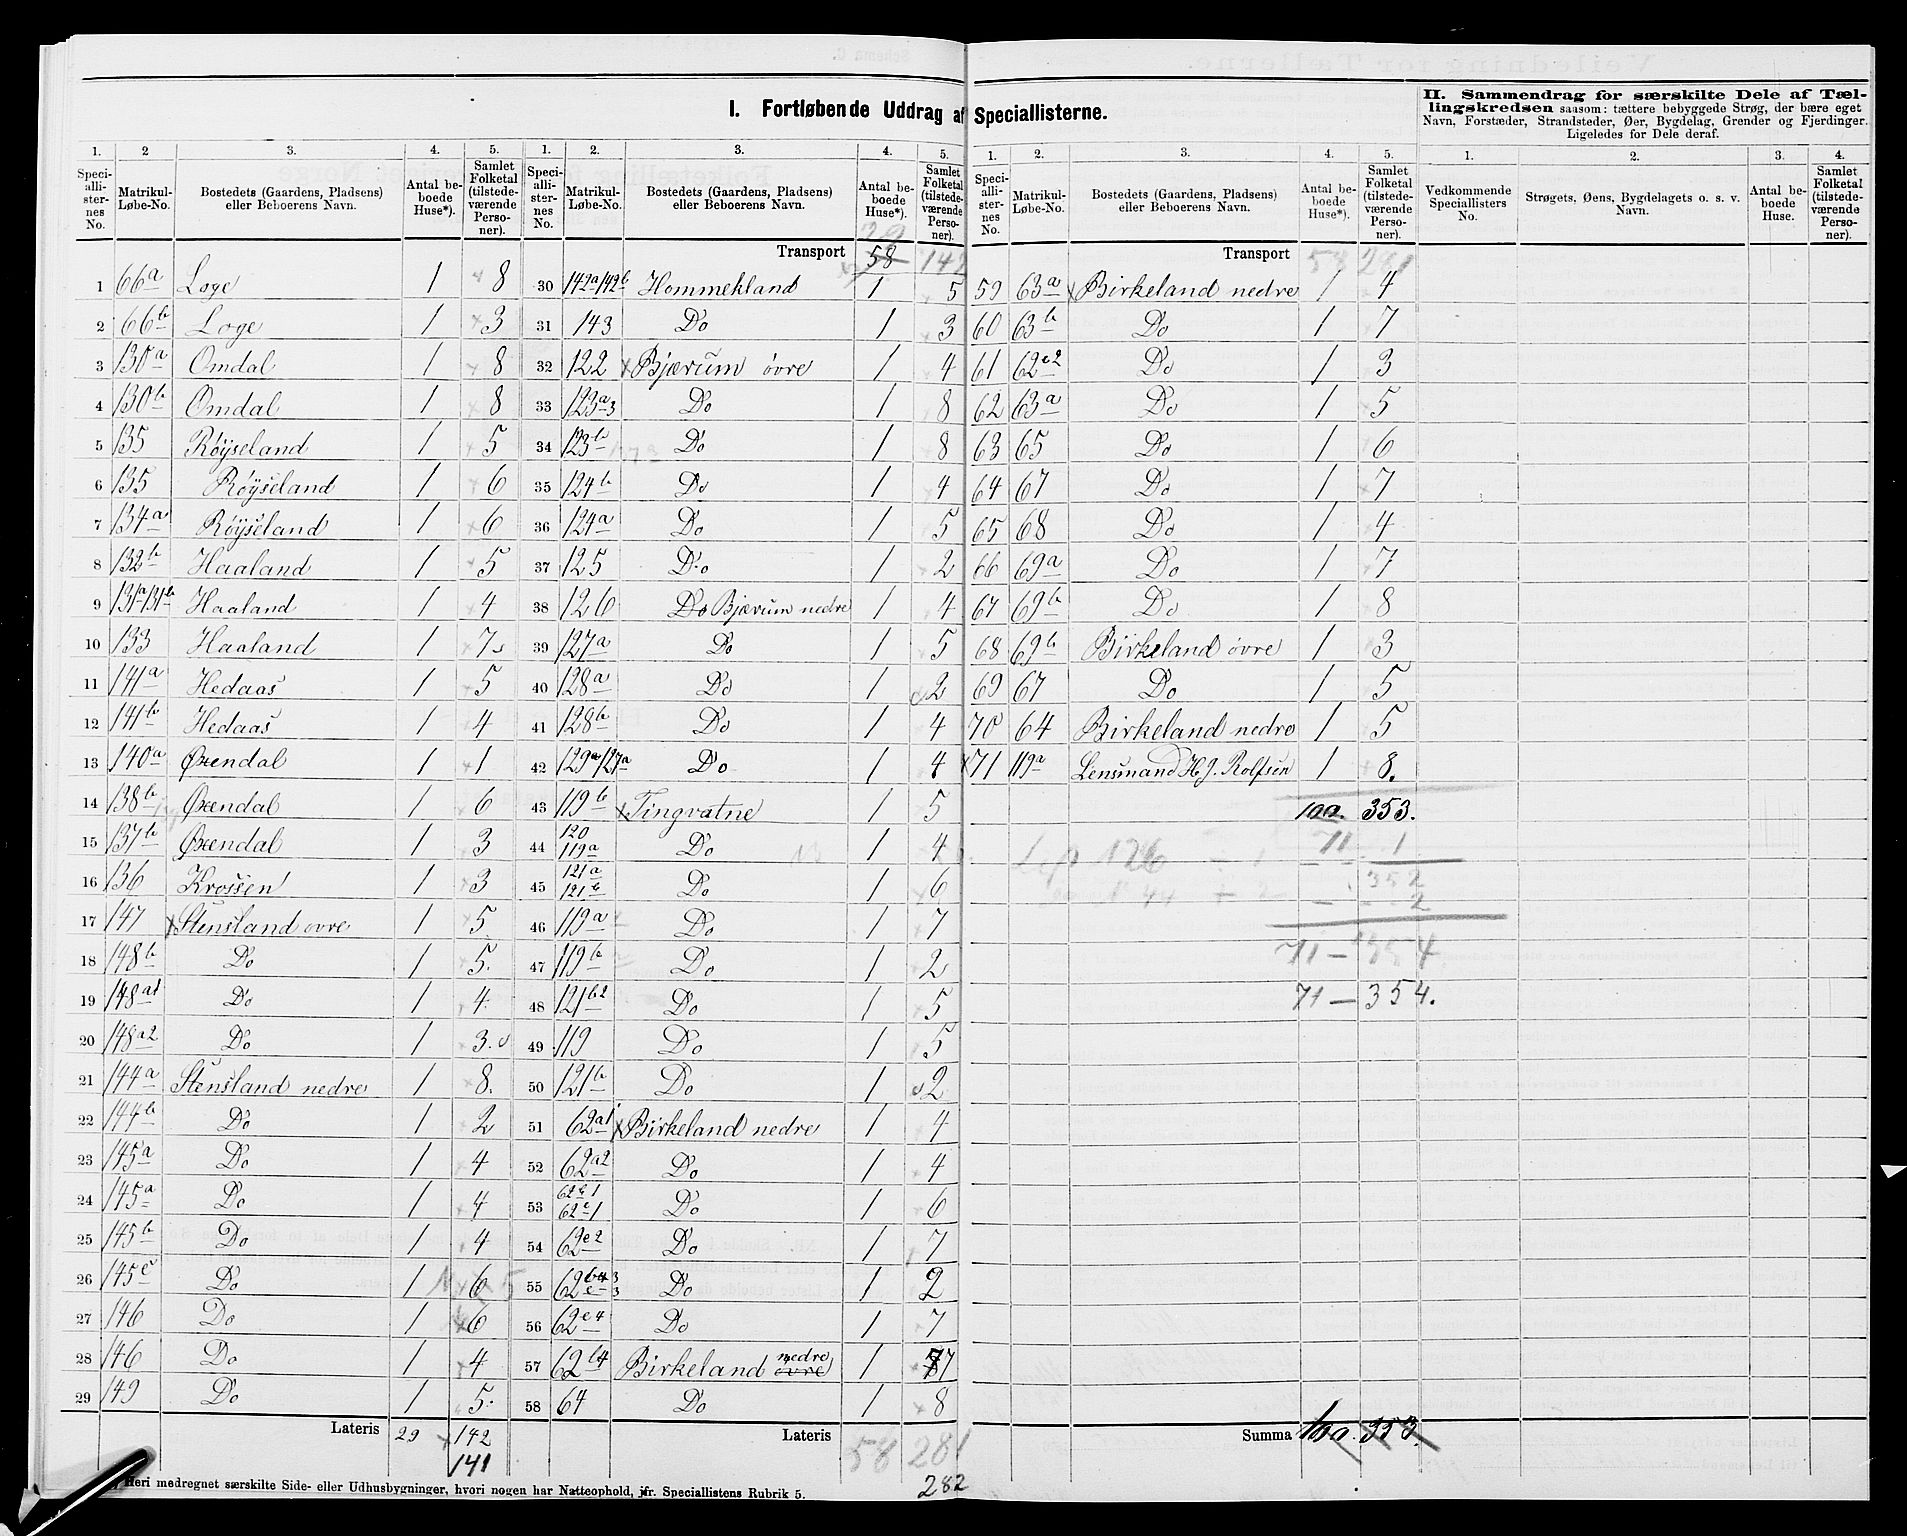 I. Fortløbende Uddrag af Speciallisterne.
II. Sammendrag for særskilte Dele af Tællingskredsen saasom: tættere bebyggede Strøg, der bære eget Navn, Forstæder, Strandsteder, Øer, Bygdelag, Grender og Fjerdinger. Ligeledes for Dele deraf.
1. 2 3. 4. 5.
Speciallisternes No. Matrikul-Løbe-No. Bostedets (Gaardens, Pladsens) eller Beboerens Navn. Antal beboede Huse*). Samlet Folketal (tilstedeværende Personer).
1 66a Loge 1 8
2 66b Loge 1 3
3 130a Omdal 1 8
4 130b Omdal 1 8
5 135 Røyseland 1 5
6 135 Røyseland 1 6
7 134a Røyseland 1 6
8 132b Haaland 1 5
9 131a/131b Haaland 1 4
10 133 Haaland 1 7
11 141a Hedaas 1 5
12 141b Hedaas 1 4
13 140a Øxendal 1 1
14 138b Øxendal 1 6
15 137b Øxendal 1 3
16 136 Krossen 1 3
17 147 Stensland øvre 1 5
18 148b Do 1 5.
19 148a1 Do 1 4.
20 148a2 Do 1 3.
21 144a Stensland nedre 1 8.
22 144b Do 1 2
23 145a Do 1 4
24 145a Do 1 4
25 145b Do 1 4
26 145c Do 1 6 5
27 146 Do 1 6
28 146 Do 1 4
29 149 Do 1 5.
Lateris 29 142
141
1. 2. 3. 4. 5.
Speciallisternes No. Matrikul-Løbe-No. Bostedets (Gaardens, Pladsens) eller Beboerens Navn. Antal beboede Huse*). Samlet Folketal (tilstedeværende Personer).
29
Transport 58 142
30 142a/142b Hommekland 1 5
31 143 Do 1 3
32 122 Bjærum øvre 1 4
33 123a3 Do 1 8
34 123b Do 1 8
35 124b Do 1 4
36 124a Do 1 5
37 125 Do 1 2
38 126 Do Bjærum nedre 1 4
39 127a Do 1 5
40 128a Do 1 2
41 128b Do 1 4
42 129a/127a Do 1 4
43 119b Tingvatne 1 5
44 120 119a Do 1 4
45 121a 121b Do 1 6
46 119a Do 1 7
47 119b Do 1 2
48 121b2 Do 1 5
49 119 Do 1 5
50 121b Do 1 2
51 62a1 Birkeland nedre 1 4
52 62a2 Do 1 4
53 62c1 Do 1 6
54 62e2 Do 1 7
55 62b4 Do 1 2
56 62e4 Do 1 7
57 62b4 Birkeland øvre nedre 1 7
58 64 Do 1 8
Lateris 58 281
282
*) Heri medregnet særskilte Side- eller Udhusbygninger, hvori nogen har Natteophold, jfr. Speciallistens Rubrik 5.
1. 2. 3. 4. 5.
Speciallisternes No. Matrikul-Løbe-No. Bostedets (Gaardens, Pladsens) eller Beboerens Navn. Antal beboede Huse*). Samlet Folketal (tilstedeværende Personer).
Transport 58 281
59 63a Birkeland nedre 1 4
60 63b Do 1 7
61 62e2 Do 1 3
62 63a Do 1 5
63 65 Do 1 6
64 67 Do 1 7
65 68 Do 1 4
66 69a Do 1 7
67 69b Do 1 8
68 69b Birkeland øvre 1 3
69 67 Do 1 5
70 64 Birkeland nedre 1 5
71 119a Lensmand H J. Rolfsen 1 8.
100. 353.
71 1
126 ÷ 1
352
No 44 + 2 2
71 — 354
71 — 354.
Summa 100. 353.
1. 2. 3. 4.
Vedkommende Speciallisters No. Strøgets, Øens, Bygdelagets o. s. v. Navn. Antal beboede Huse. Samlet Folketal (tilstedeværende Personer).